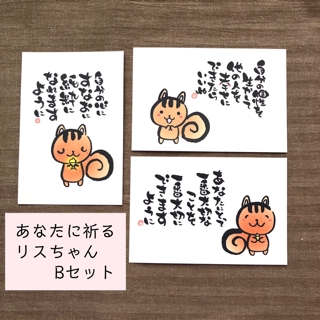 自分の心に
すなおに
純粋に
なれますように
自分の個性を
生かして
他の人を
幸せに
できたら
いいね
あなたにとって
一番大切な
ことを
一番大切に
できます
ように
あなたに祈る
リスちゃん
Bセット